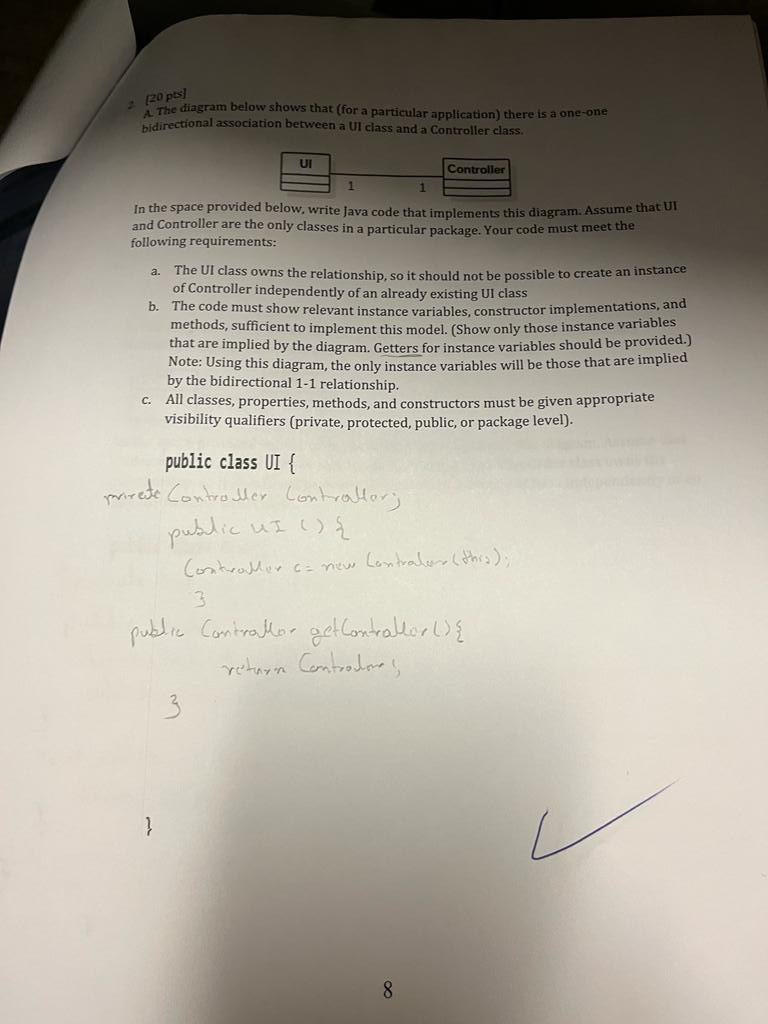 2. [20 pts]
A. The diagram below shows that (for a particular application) there is a one-one
bidirectional association between a UI class and a Controller class.
UI
Controller
1
1
In the space provided below, write Java code that implements this diagram. Assume that UI
and Controller are the only classes in a particular package. Your code must meet the
following requirements:
a. The UI class owns the relationship, so it should not be possible to create an instance
of Controller independently of an already existing UI class
b. The code must show relevant instance variables, constructor implementations, and
methods, sufficient to implement this model. (Show only those instance variables
that are implied by the diagram. Getters for instance variables should be provided.)
Note: Using this diagram, the only instance variables will be those that are implied
by the bidirectional 1-1 relationship.
c. All classes, properties, methods, and constructors must be given appropriate
visibility qualifiers (private, protected, public, or package level).
public class UI {
private Controller Controller;
public UI () {
Controller c = new Controller (this);
}
public Controller getController() {
return Controller;
}
}
8